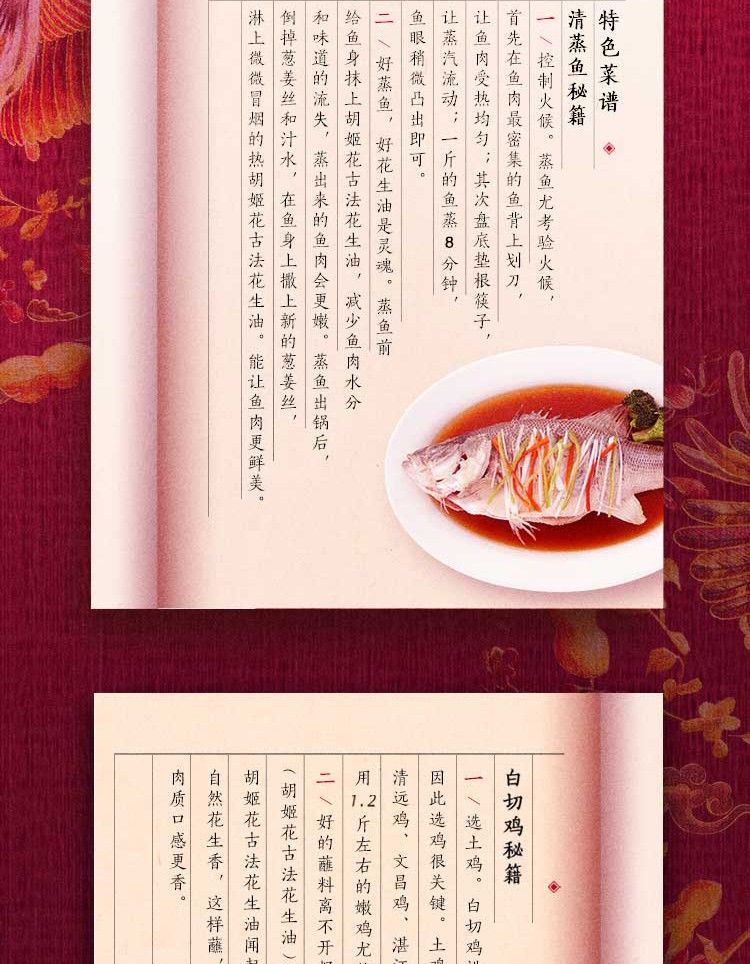 特色菜谱
清蒸鱼秘籍
一、控制火候。蒸鱼尤考验火候，
首先在鱼肉最密集的鱼背上划刀，
让鱼肉受热均匀；其次盘底垫根筷子，
让蒸汽流动；一斤的鱼蒸8分钟，
鱼眼稍微凸出即可。
二、好蒸鱼，好花生油是灵魂。蒸鱼前
给鱼身抹上胡姬花古法花生油，减少鱼肉水分
和味道的流失，蒸出来的鱼肉会更嫩。蒸鱼出锅后，
倒掉葱姜丝和汁水，在鱼身上撒上新的葱姜丝，
淋上微微冒烟的热胡姬花古法花生油。能让鱼肉更鲜美。
白切鸡秘籍
一、选土鸡。白切鸡
因此选鸡很关键。土
清远鸡、文昌鸡、湛
用1.2斤左右的嫩鸡尤
二、好的蘸料离不开
（胡姬花古法花生油）
胡姬花古法花生油闻
自然花生香，这样蘸，
肉质口感更香。